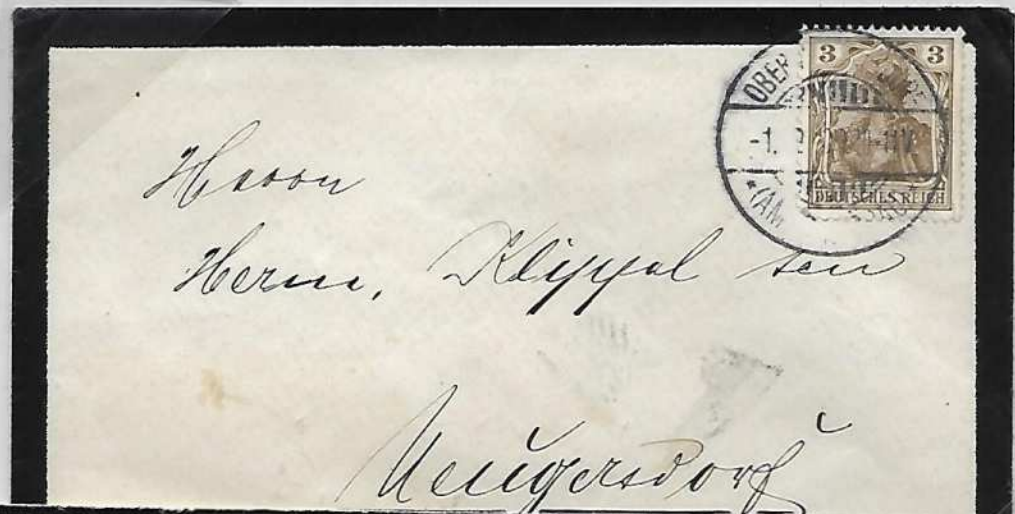 3 3
DEUTSCHES REICH
-1.
Herrn
Herm. Klippel sen
Neugersdorf